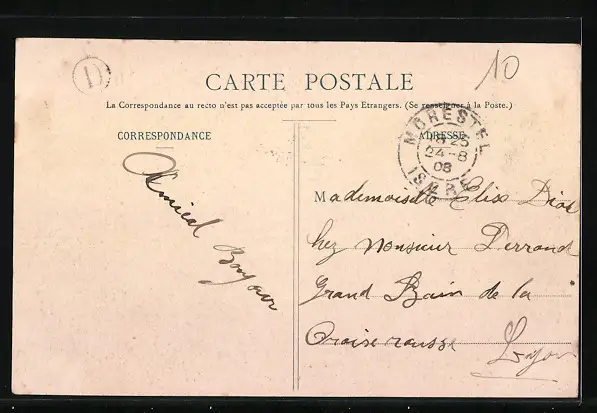 D
10
CARTE POSTALE
La Correspondance au recto n'est pas acceptée par tous les Pays Etrangers. (Se renseigner à la Poste.)
CORRESPONDANCE
ADRESSE
MORESTEL
18 25
24-8
08
ISERE
Amical
Bonjour
Mademoiselle Elisa
hez Monsieur Perrand
Grand Bain de la
Croix rousse
Lyon